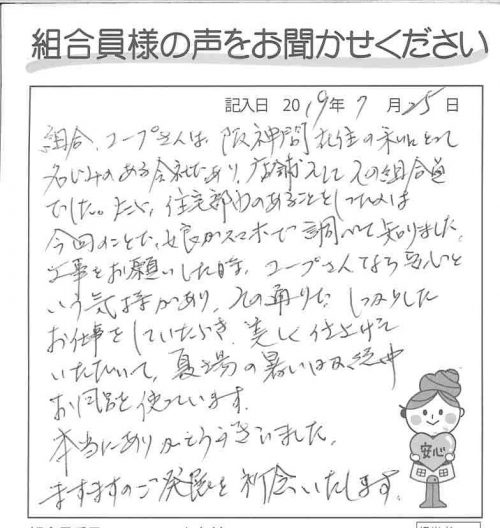 組合員様の声をお聞かせください
記入日 2019年7月25日
組合、コープさんは、阪神間在住の私にとって
名じみのある会社であり、店舗 その組合員
でした。ただ、住宅部門のあることをしったのは
今回のことで、娘がスマホで調べて知りました。
工事をお願いした時、コープさんなら安心と
いう気持があり、その通りに しっかりした
お仕事をしていただき、美しく仕上げて
いただいて、夏場の暑い 中
お風呂を使っています。
本当にありがとうございました。
ますますのご発展を祈念いたします。
安心